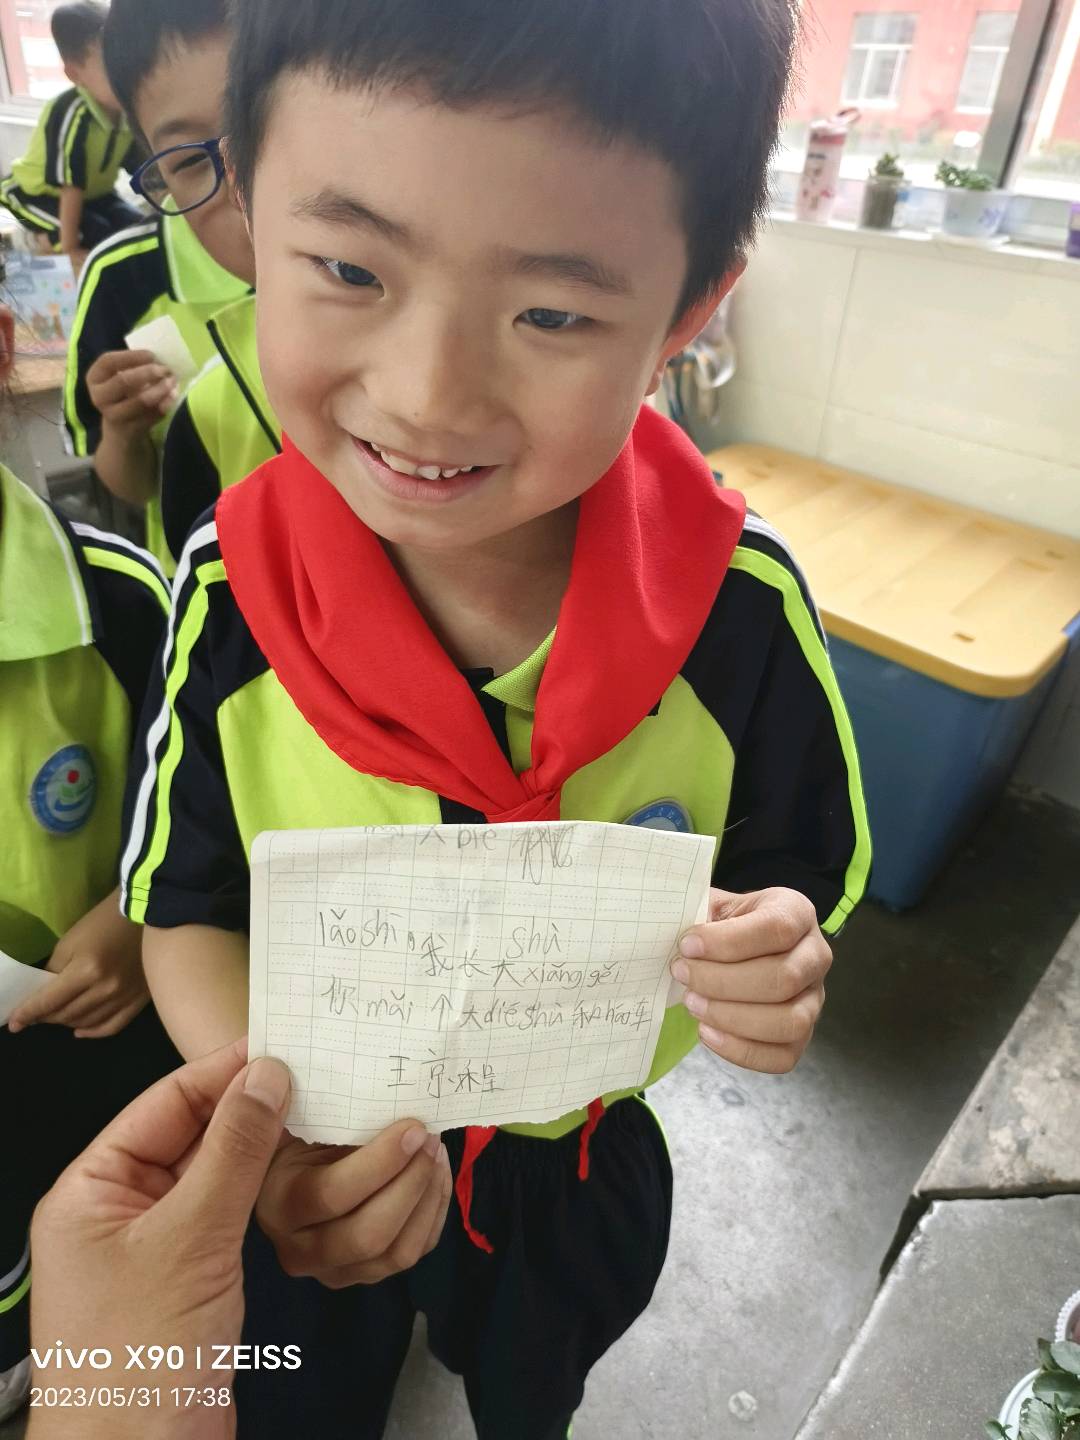 大 bié
lǎo shī，我长大 xiǎng gěi
你 mǎi 个大 dié shù 和 hǎo 车
shù
王京程
vivo X90 | ZEISS
2023/05/31 17:38